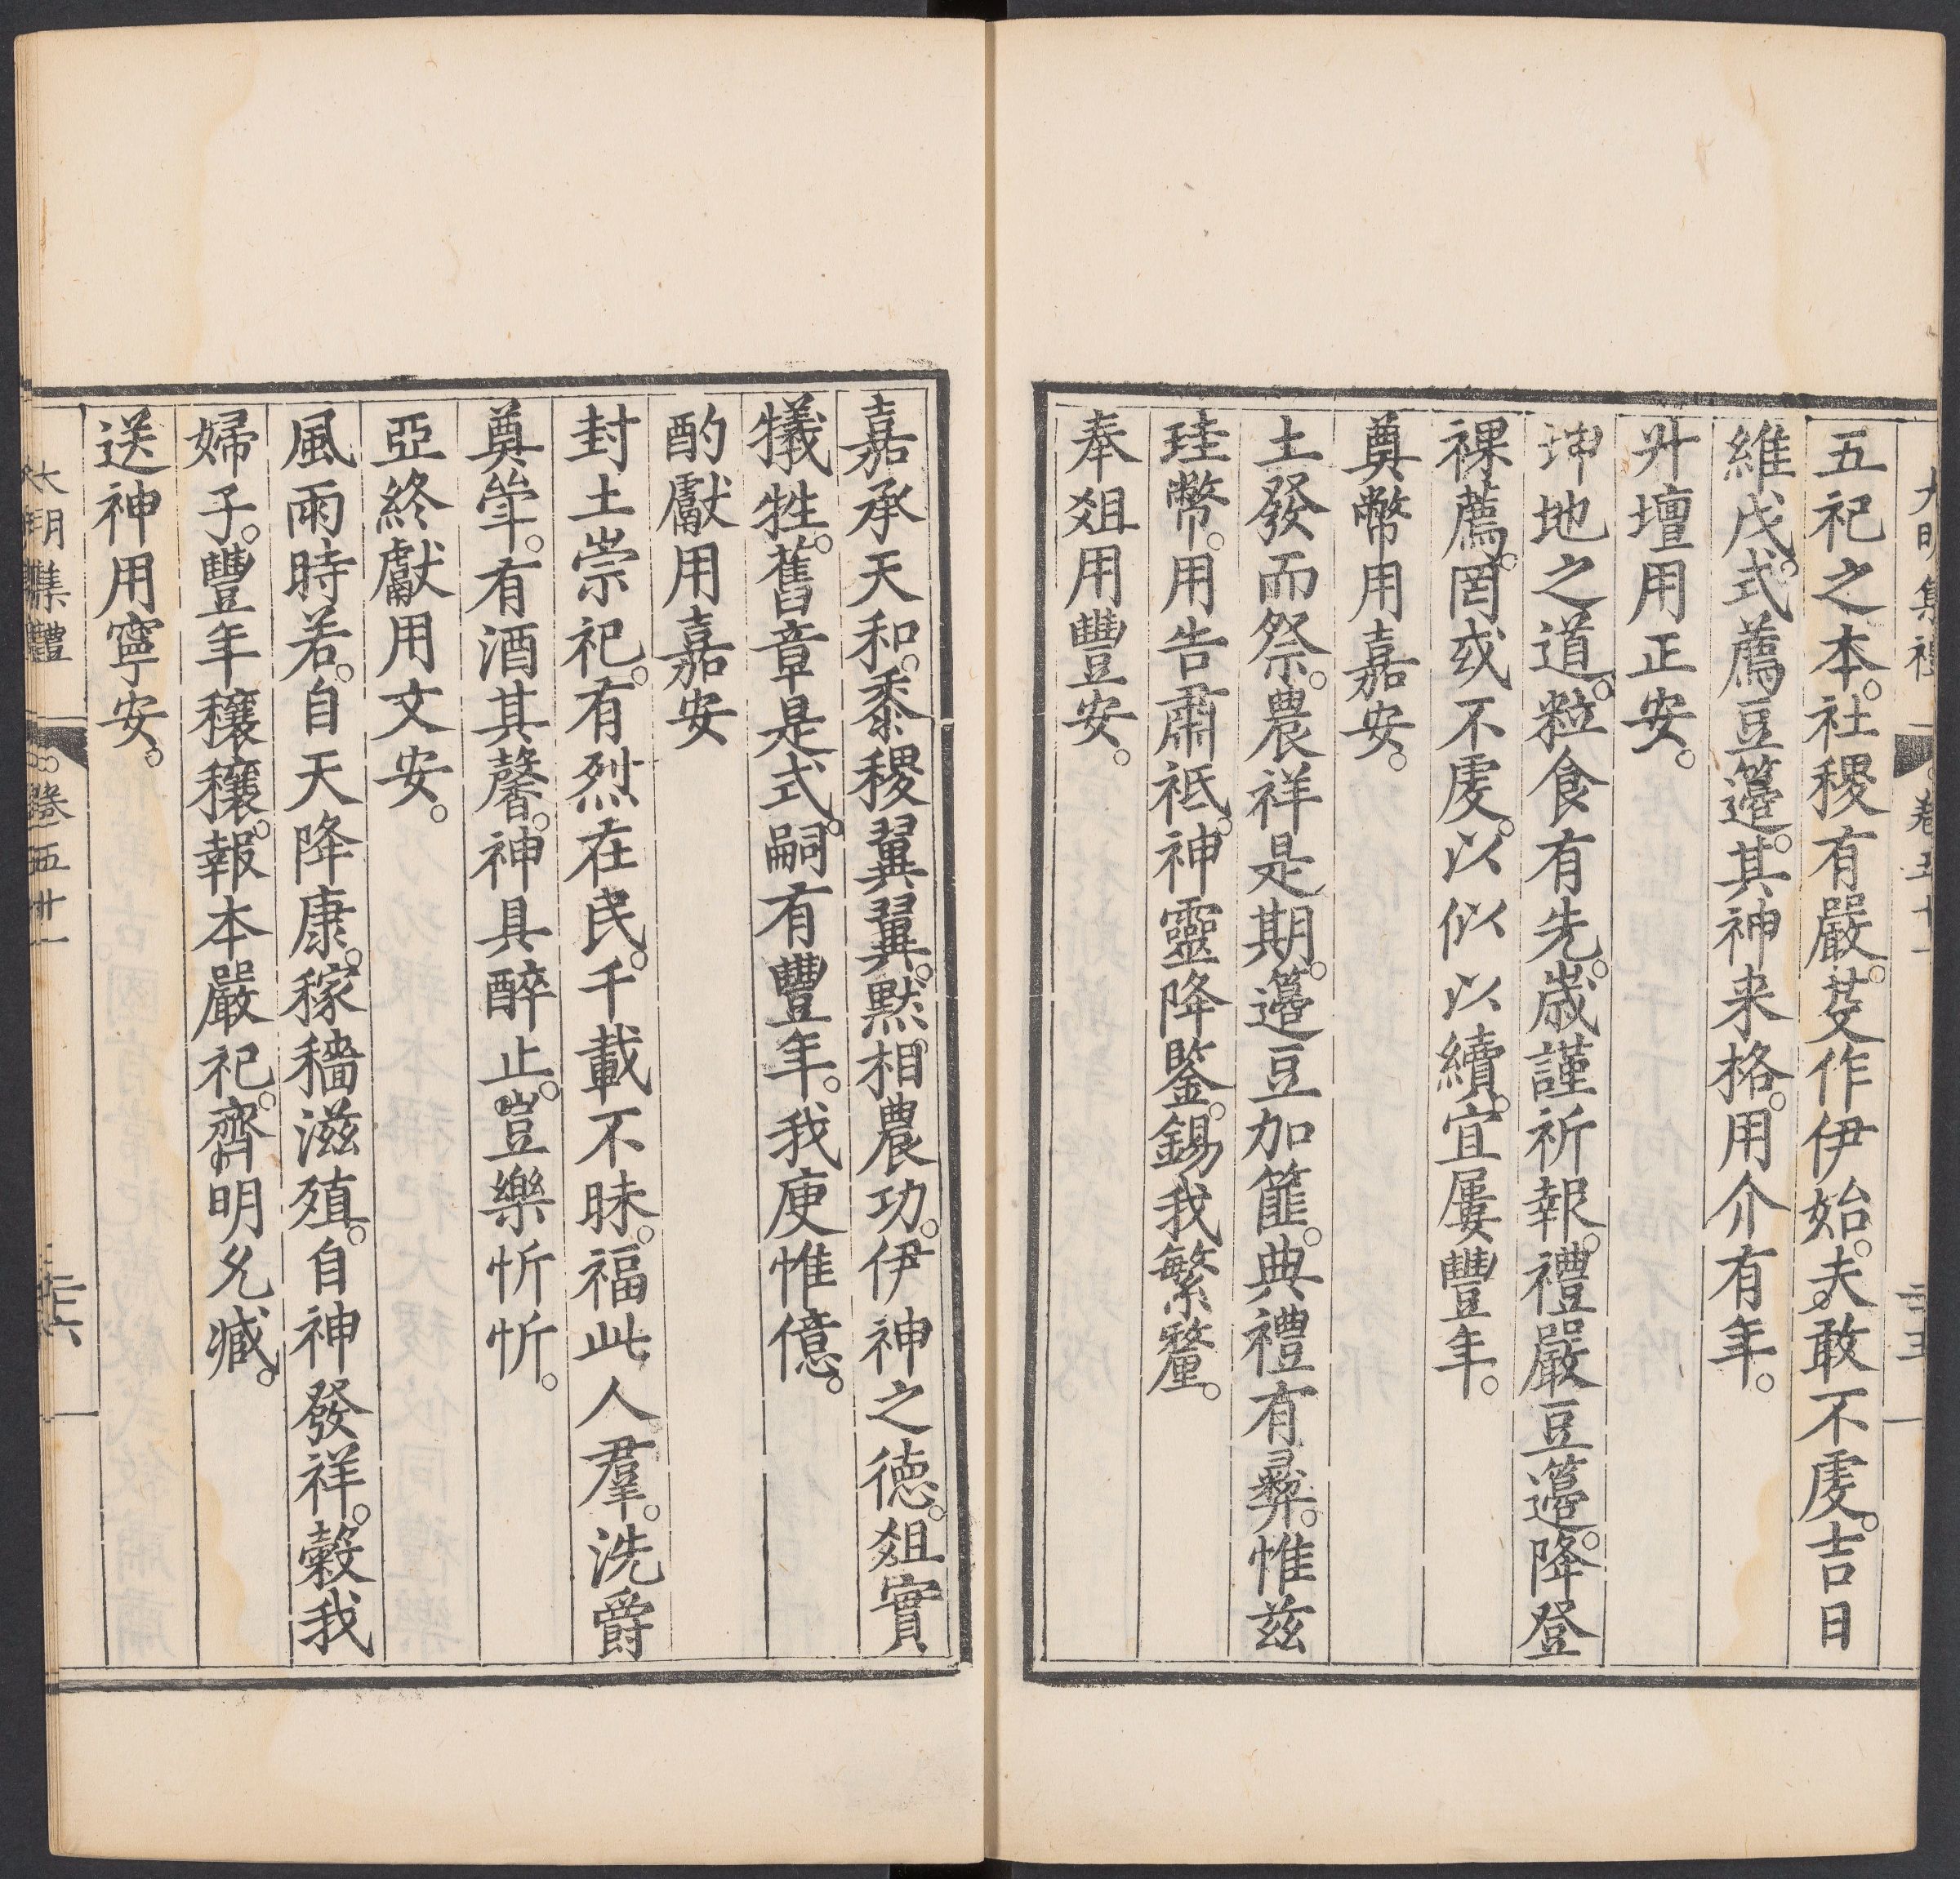 大明集禮 卷五十一 三十五
五祀之本。社稷有嚴。芟作伊始。夫敢不虔。吉日
維戊。式薦豆籩。其神来格。用介有年。
升壇用正安。
坤地之道。粒食有先。歳謹祈報。禮嚴豆籩。降登
祼薦。罔或不虔。以似以續。宜屢豐年。
奠幣用嘉安。
土發而祭。農祥是期。籩豆加篚。典禮有彝。惟兹
珪幣。用告肅祗。神靈降鑒。錫我繁釐。
奉俎用豐安。
嘉承天和。黍稷翼翼。黙相農功。伊神之徳。俎實
犧牲。舊章是式。嗣有豐年。我庾惟億。
酌獻用嘉安
封土崇祀。有烈在民。千載不昧。福此人羣。洗爵
奠斝。有酒其馨。神具醉止。豈樂忻忻。
亞終獻用文安。
風雨時若。自天降康。稼穡滋殖。自神發祥。榖我
婦子。豐年穰穰。報本嚴祀。齊明允臧。
送神用寧安。
大明集禮 卷五十一 三十六